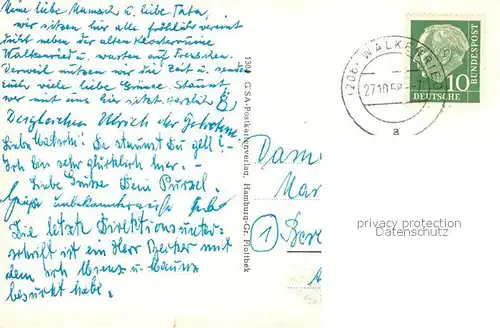 Meine liebe Mamach u. liebe Tata,
wir sitzen hier alle fröhlich vereint
dicht neben der alten Klosterruine
Walkenried u. warten auf
Derweil nutzen wir die Zeit u. senden
Euch viele liebe Grüsse. Staunt,
wer mit uns hier sitzt. Herzlich
Desgleichen Ulrich der Getreue.
Liebe Da staunst Du gell! -
Ich bin sehr glücklich hier. -
Liebe Grüsse Dein Purzel.
Grüsse
Die letzte Direktionsunter-
schrift ist ein Herr Becher mit
dem ich u.
besucht habe.
1304 GSA-Postkartenverlag, Hamburg-Gr. Flottbek
(20b) WALKENRIED
27.10.58
a
DEUTSCHE
BUNDESPOST
10
Dam
Mar
1
Ber
privacy protection
Datenschutz